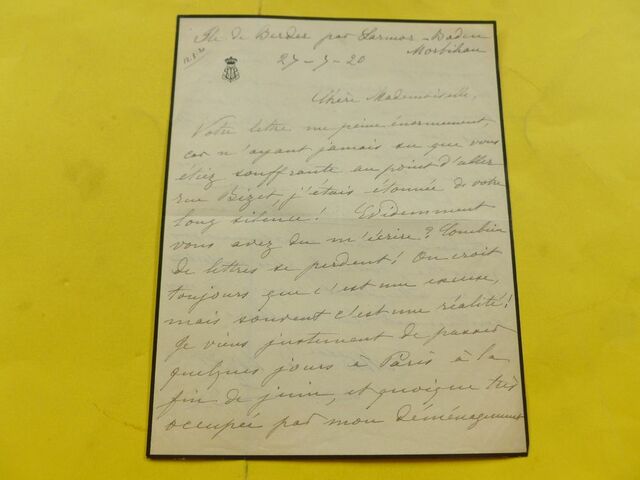 Ile de Berder par Larmor-Baden
Morbihan
20
Chère Mademoiselle,
Votre lettre me peine énormement,
car n'ayant jamais su que vous
étiez souffrante au point d'aller
rue Bizet, j'étais étonnée de votre
long silence! Evidemment
vous avez du m'écrire? Combien
de lettres se perdent! On croit
toujours que c'est une excuse,
mais souvent c'est une réalité!
Je viens justement de passer
quelques jours à Paris à la
fin de juin, et quoique très
occupée par mon déménagement